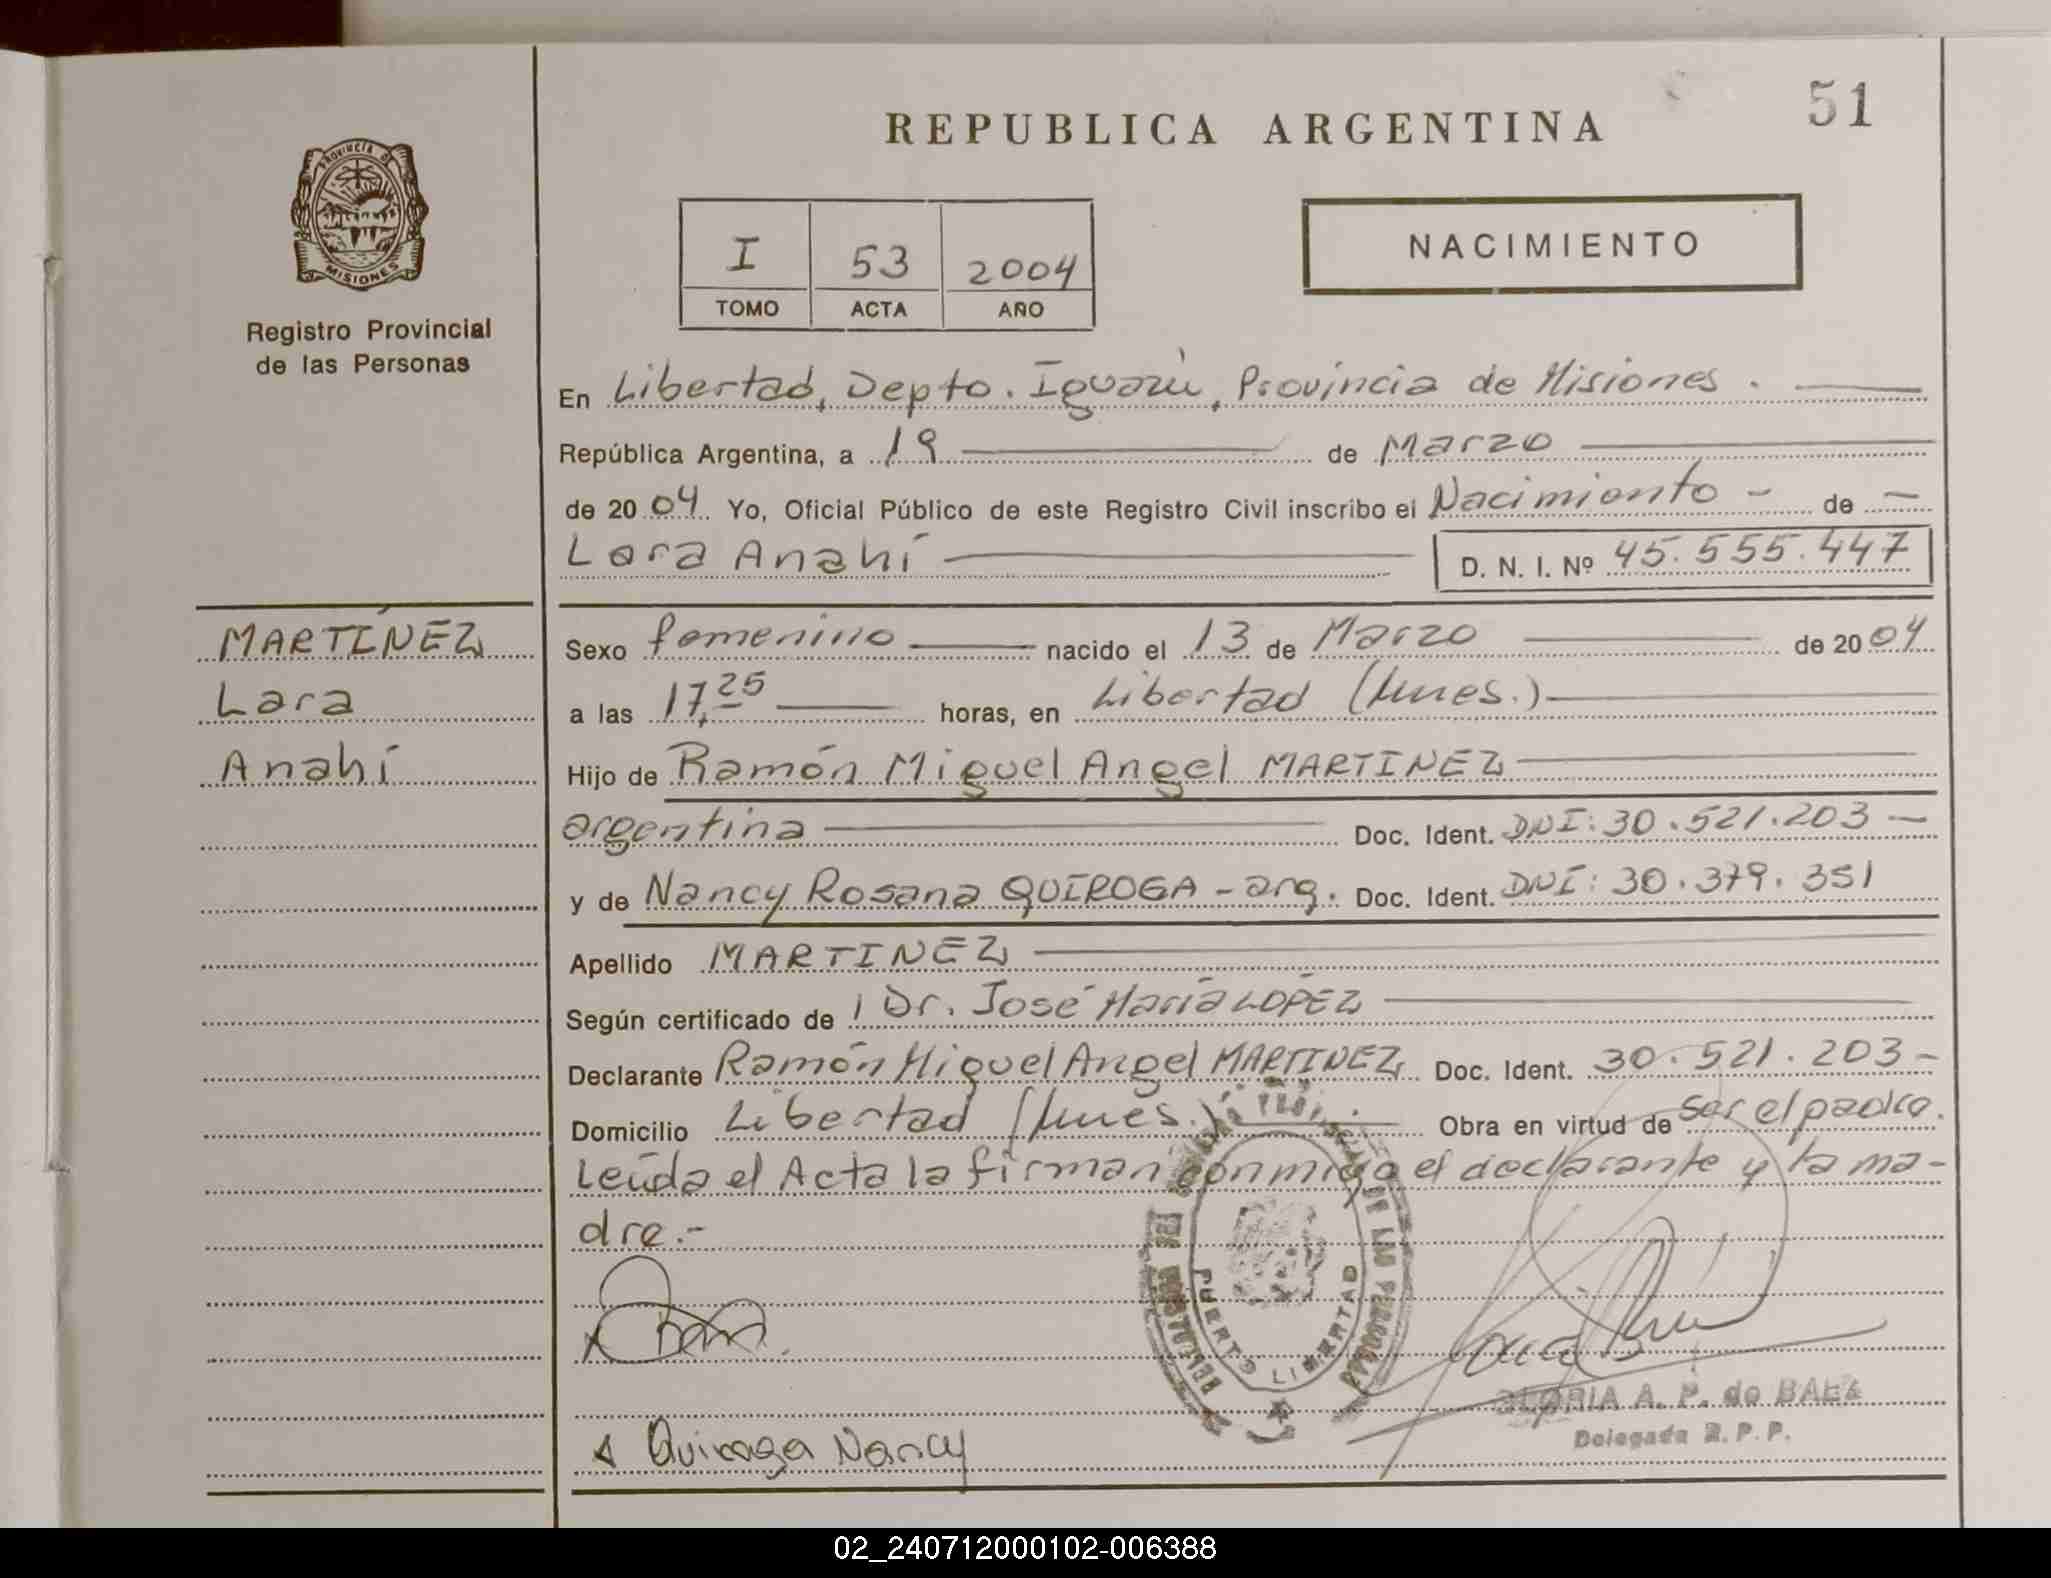 51
REPUBLICA ARGENTINA
PROVINCIA DE
MISIONES
Registro Provincial
de las Personas
I 53 2004
TOMO ACTA AÑO
NACIMIENTO
En Libertad, Depto. Iguazú, Provincia de Misiones.
República Argentina, a 19 de Marzo
de 2004 Yo, Oficial Público de este Registro Civil inscribo el Nacimiento - de -
Lara Anahí D. N. I. Nº 45.555.447
MARTÍNEZ
Lara
Anahí
Sexo femenino nacido el 13 de Marzo de 2004
a las 17,25 horas, en Libertad (Mnes.)
Hijo de Ramón Miguel Angel MARTINEZ
argentina Doc. Ident. DNI: 30.521.203 -
y de Nancy Rosana QUIROGA - arg. Doc. Ident. DNI: 30.379.351
Apellido MARTINEZ
Según certificado de Dr. José María LOPEZ
Declarante Ramón Miguel Angel MARTINEZ Doc. Ident. 30.521.203 -
Domicilio Libertad (Mnes.) Obra en virtud de ser el padre.
Leída el Acta la firman conmigo el declarante y la ma-
dre.-
DE LAS PERSONAS
PUERTO LIBERTAD
GLORIA A. P. de BAEZ
Delegada R. P. P.
Quiroga Nancy
02_240712000102-006388